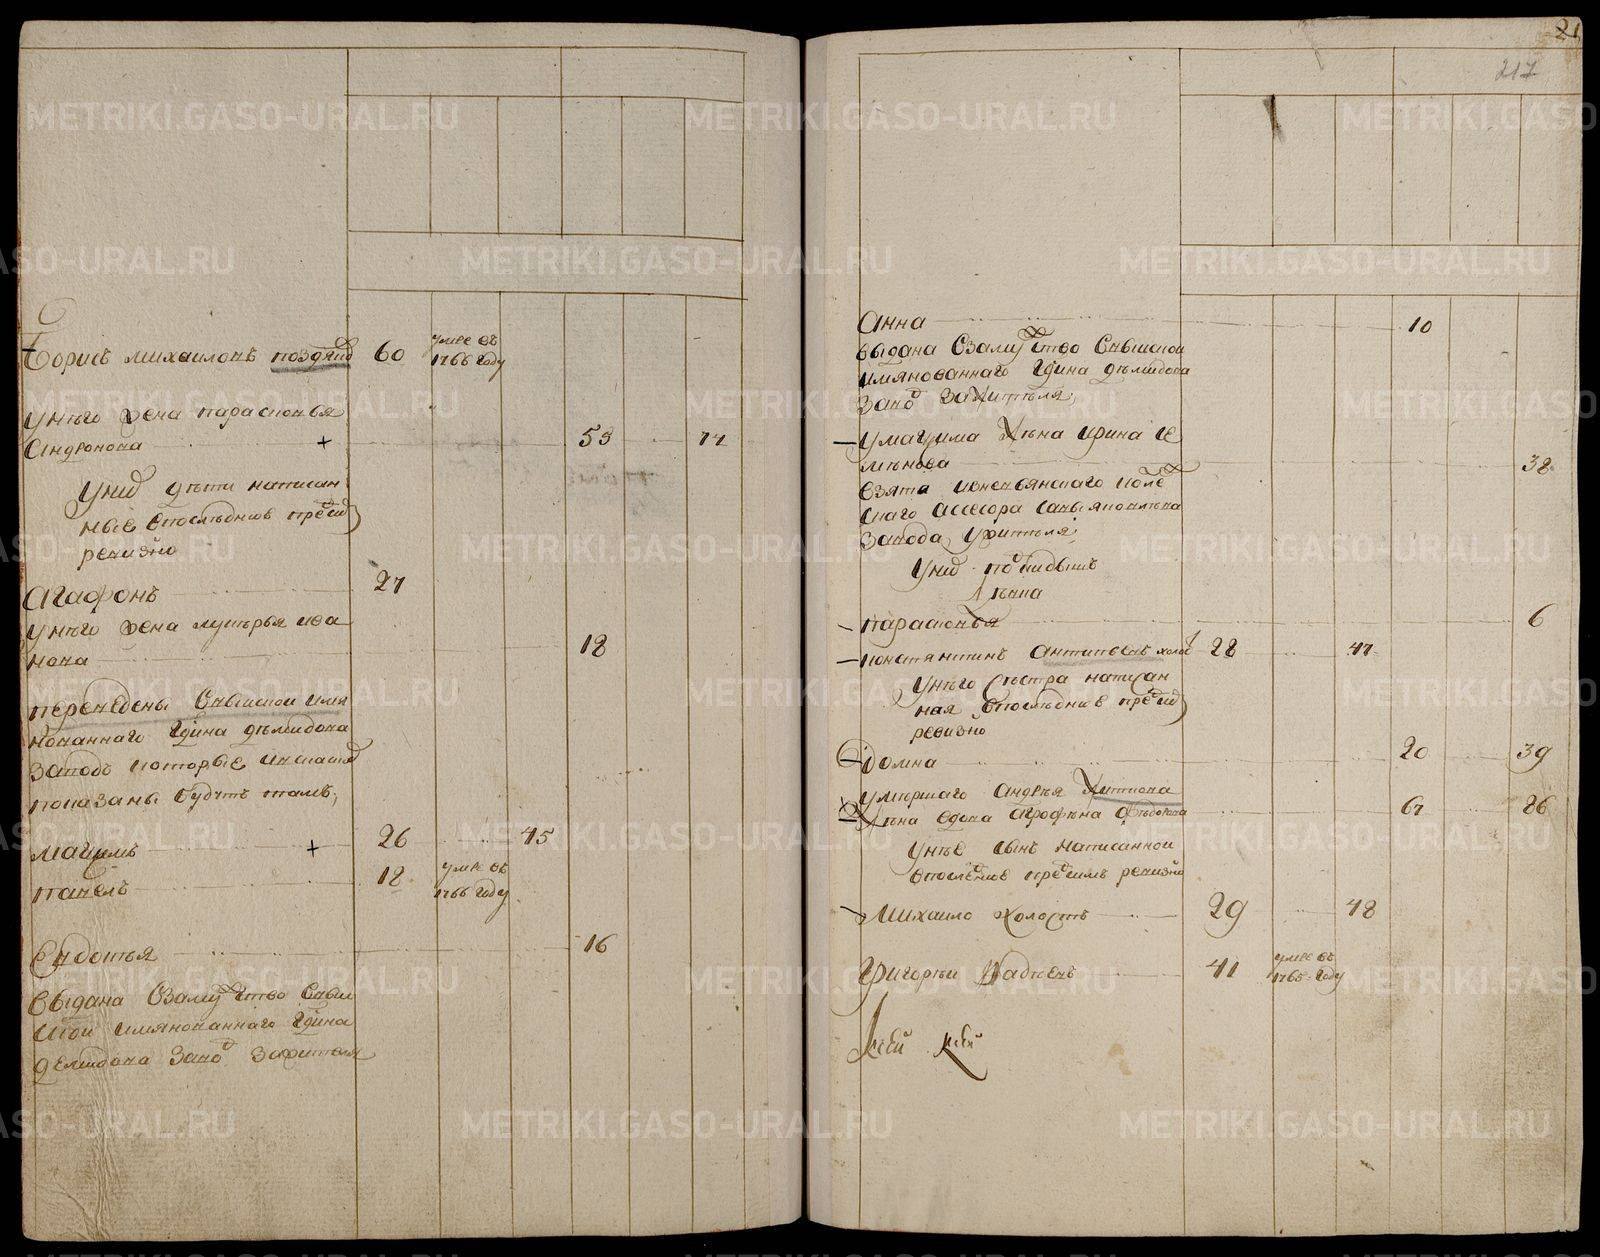 Борисъ михаиловъ поздѣи 60 умре въ 1766 году
унего жена парасковья
Андронова + 55 74
уних дѣти написан
ные впослѣднюю пред
ревизию
Агафонъ 27
унего жена лукерья ива
нова 18
переведены Свышеои имя
нованнаго Гдина демидова
заводъ которые инасказ
показаны будутъ тамъ,
маѯимъ + 26 45
павелъ 18 умре въ 1766 году
Евдокья 16
выдана Взамужство Свыше
имянованнаго Гдина
демидова завод зажителя
217
Анна 10
выдана Взамужство Свышеои
имянованнаго Гдина демидова
завод зажителя,
умаѯима жена ирина се
менова 38
взята изневьянскаго колле
скаго Ассесора Саввы яковлева
завода ужителя,
уних родившиеся
дочь
парасковья 6
константинъ антипьевъ холост 28 47
унего Сестра написан
ная впоследнюю пред
ревизию
домна 20 39
умершаго андрея
жена вдова агрофена федорова 67 86
унее сынъ написанной
впоследнюю пред симъ ревизию
михаило холостъ 29 48
григореи 41 умре въ 1765 году
METRIKI.GASO-URAL.RU